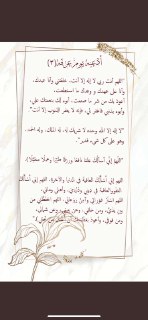 أدعية يوم عرفة (٣)
"اللهم أنت ربي لا إله إلا أنت، خلقتني وأنا عبدك،
وأنا على عهدك و وعدك ما استطعت،
أعوذ بك من شر ما صنعت، أبوء لك بنعمتك علي،
وأبوء بذنبي فاغفر لي، فإنه لا يغفر الذنوب إلا أنت".
"لا إله إلا الله وحده لا شريك له، له الملك، وله الحمد
وهو على كل شيء قدير".
"اللهم إني أسألك علما نافعا ورزقا طيبا وعملا متقبلا".
اللهم إني أسألك العافية في الدنيا والآخرة، اللهم إني أسألك
العفو والعافية في ديني ودنياي، وأهلي ومالي،
اللهم استر عوراتي وآمن روعاتي، اللهم احفظني من
بين يدي، ومن خلفي، وعن يميني وعن شمالي،
ومن فوقي، وأعوذ بعظمتك أن أغتال من تحتي".